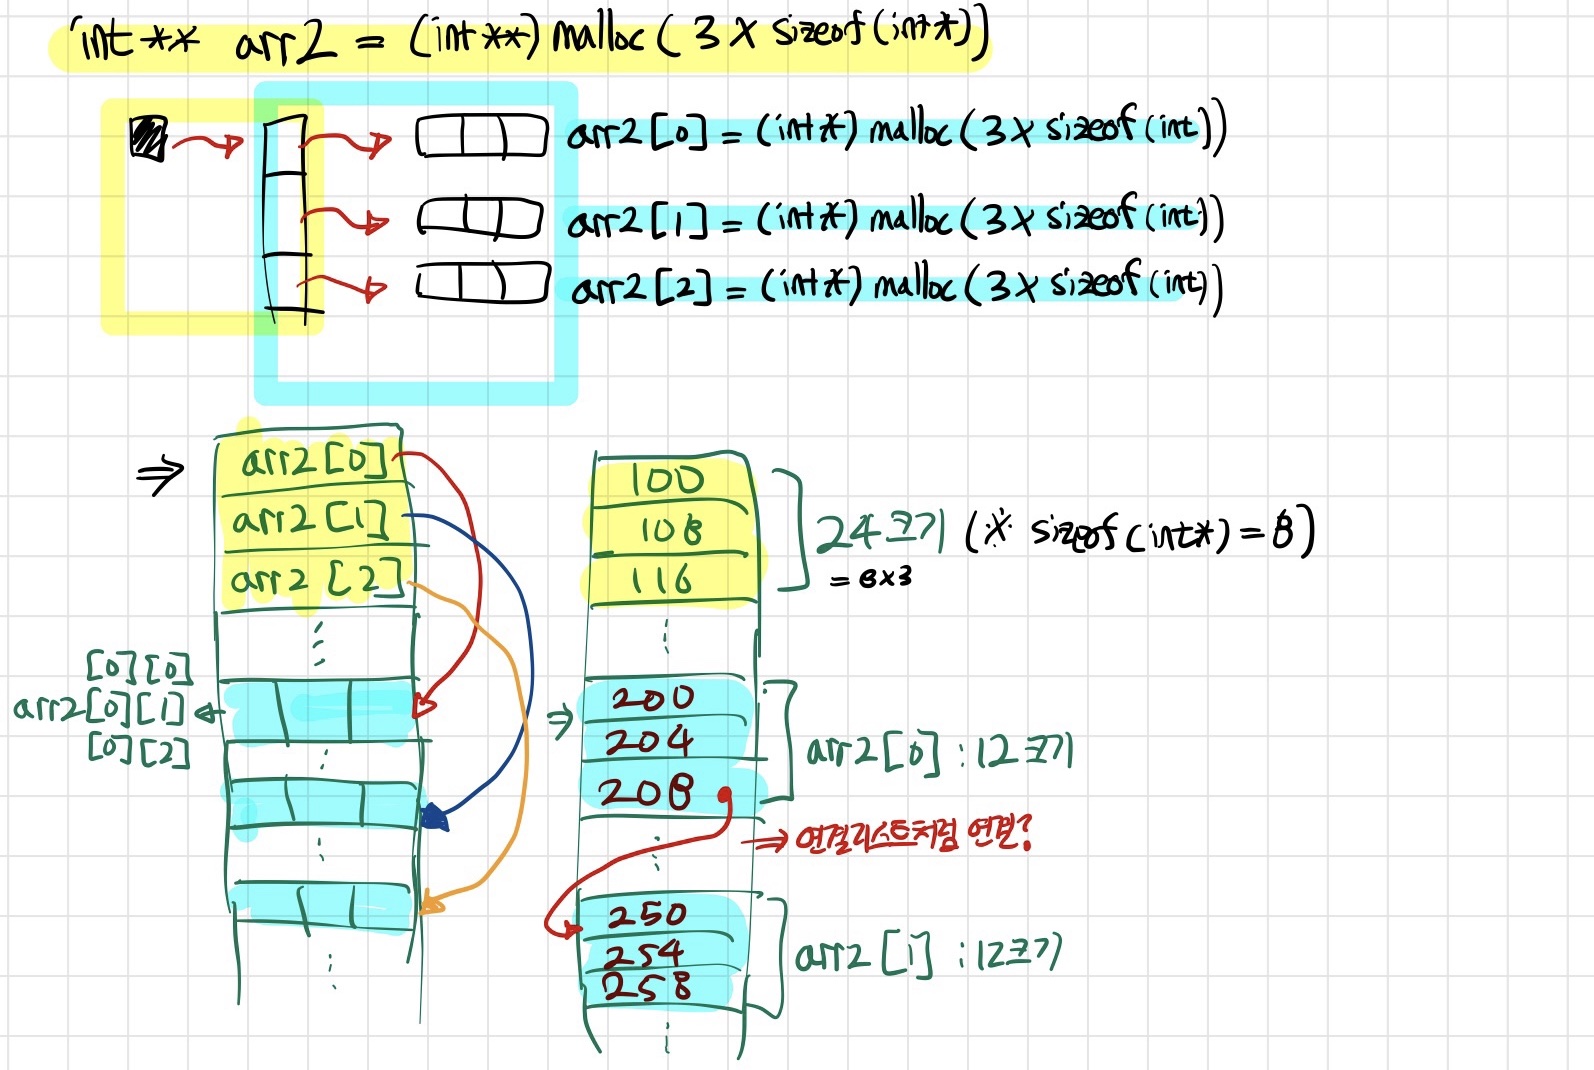 int** arr2 = (int**) malloc( 3 X sizeof(int*))
arr2[0] = (int*) malloc(3X sizeof(int))
arr2[1] = (int*) malloc(3X sizeof(int))
arr2[2] = (int*) malloc(3X sizeof(int))
⇒ arr2[0]
arr2[1]
arr2[2]
[0][0]
arr2[0][1] ←
[0][2]
100
108
116
24크기 (※ sizeof(int*) = 8)
= 8x3
⇒ 200
204
208
arr2[0] : 12크기
⇒ 연결리스트처럼 연결?
250
254
258
arr2[1] : 12크기